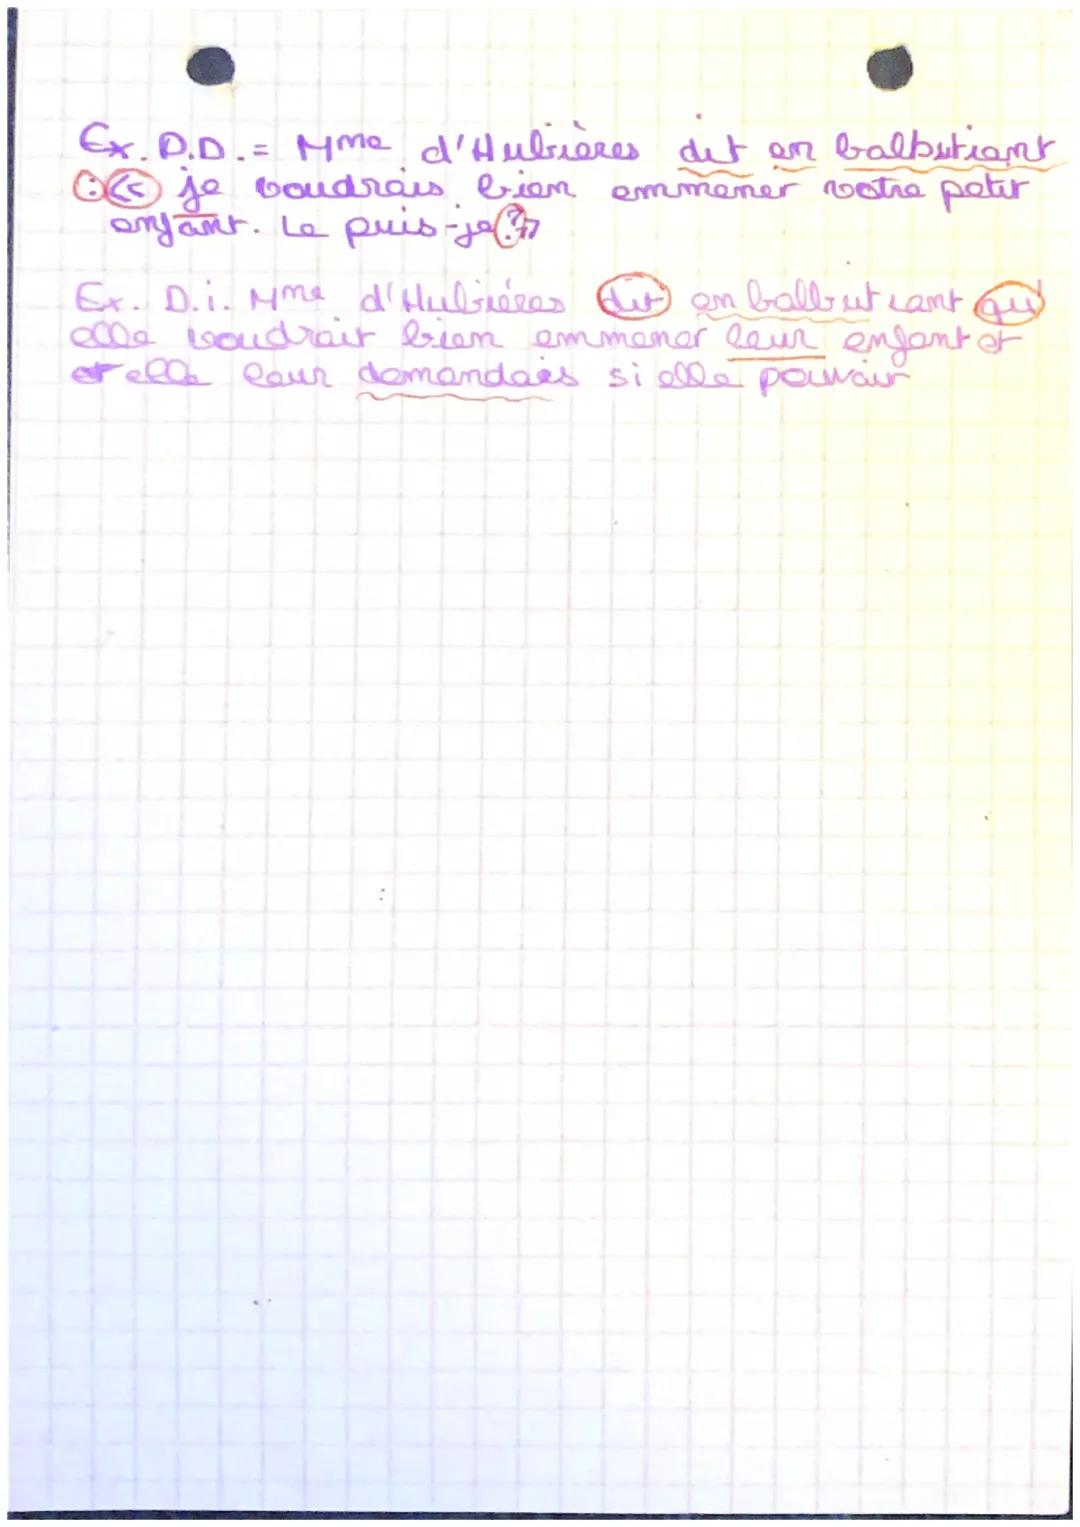 Ex. D.D. = Mme d'Hubières dit en balbutiant
: « je voudrais bien emmener votre petit
enfant. Le puis-je ? »
Ex. D.i. Mme d'Hubiéres dit en balbutiant qu'
elle voudrait bien emmener leur enfant et
et elle leur demandais si elle pouvait